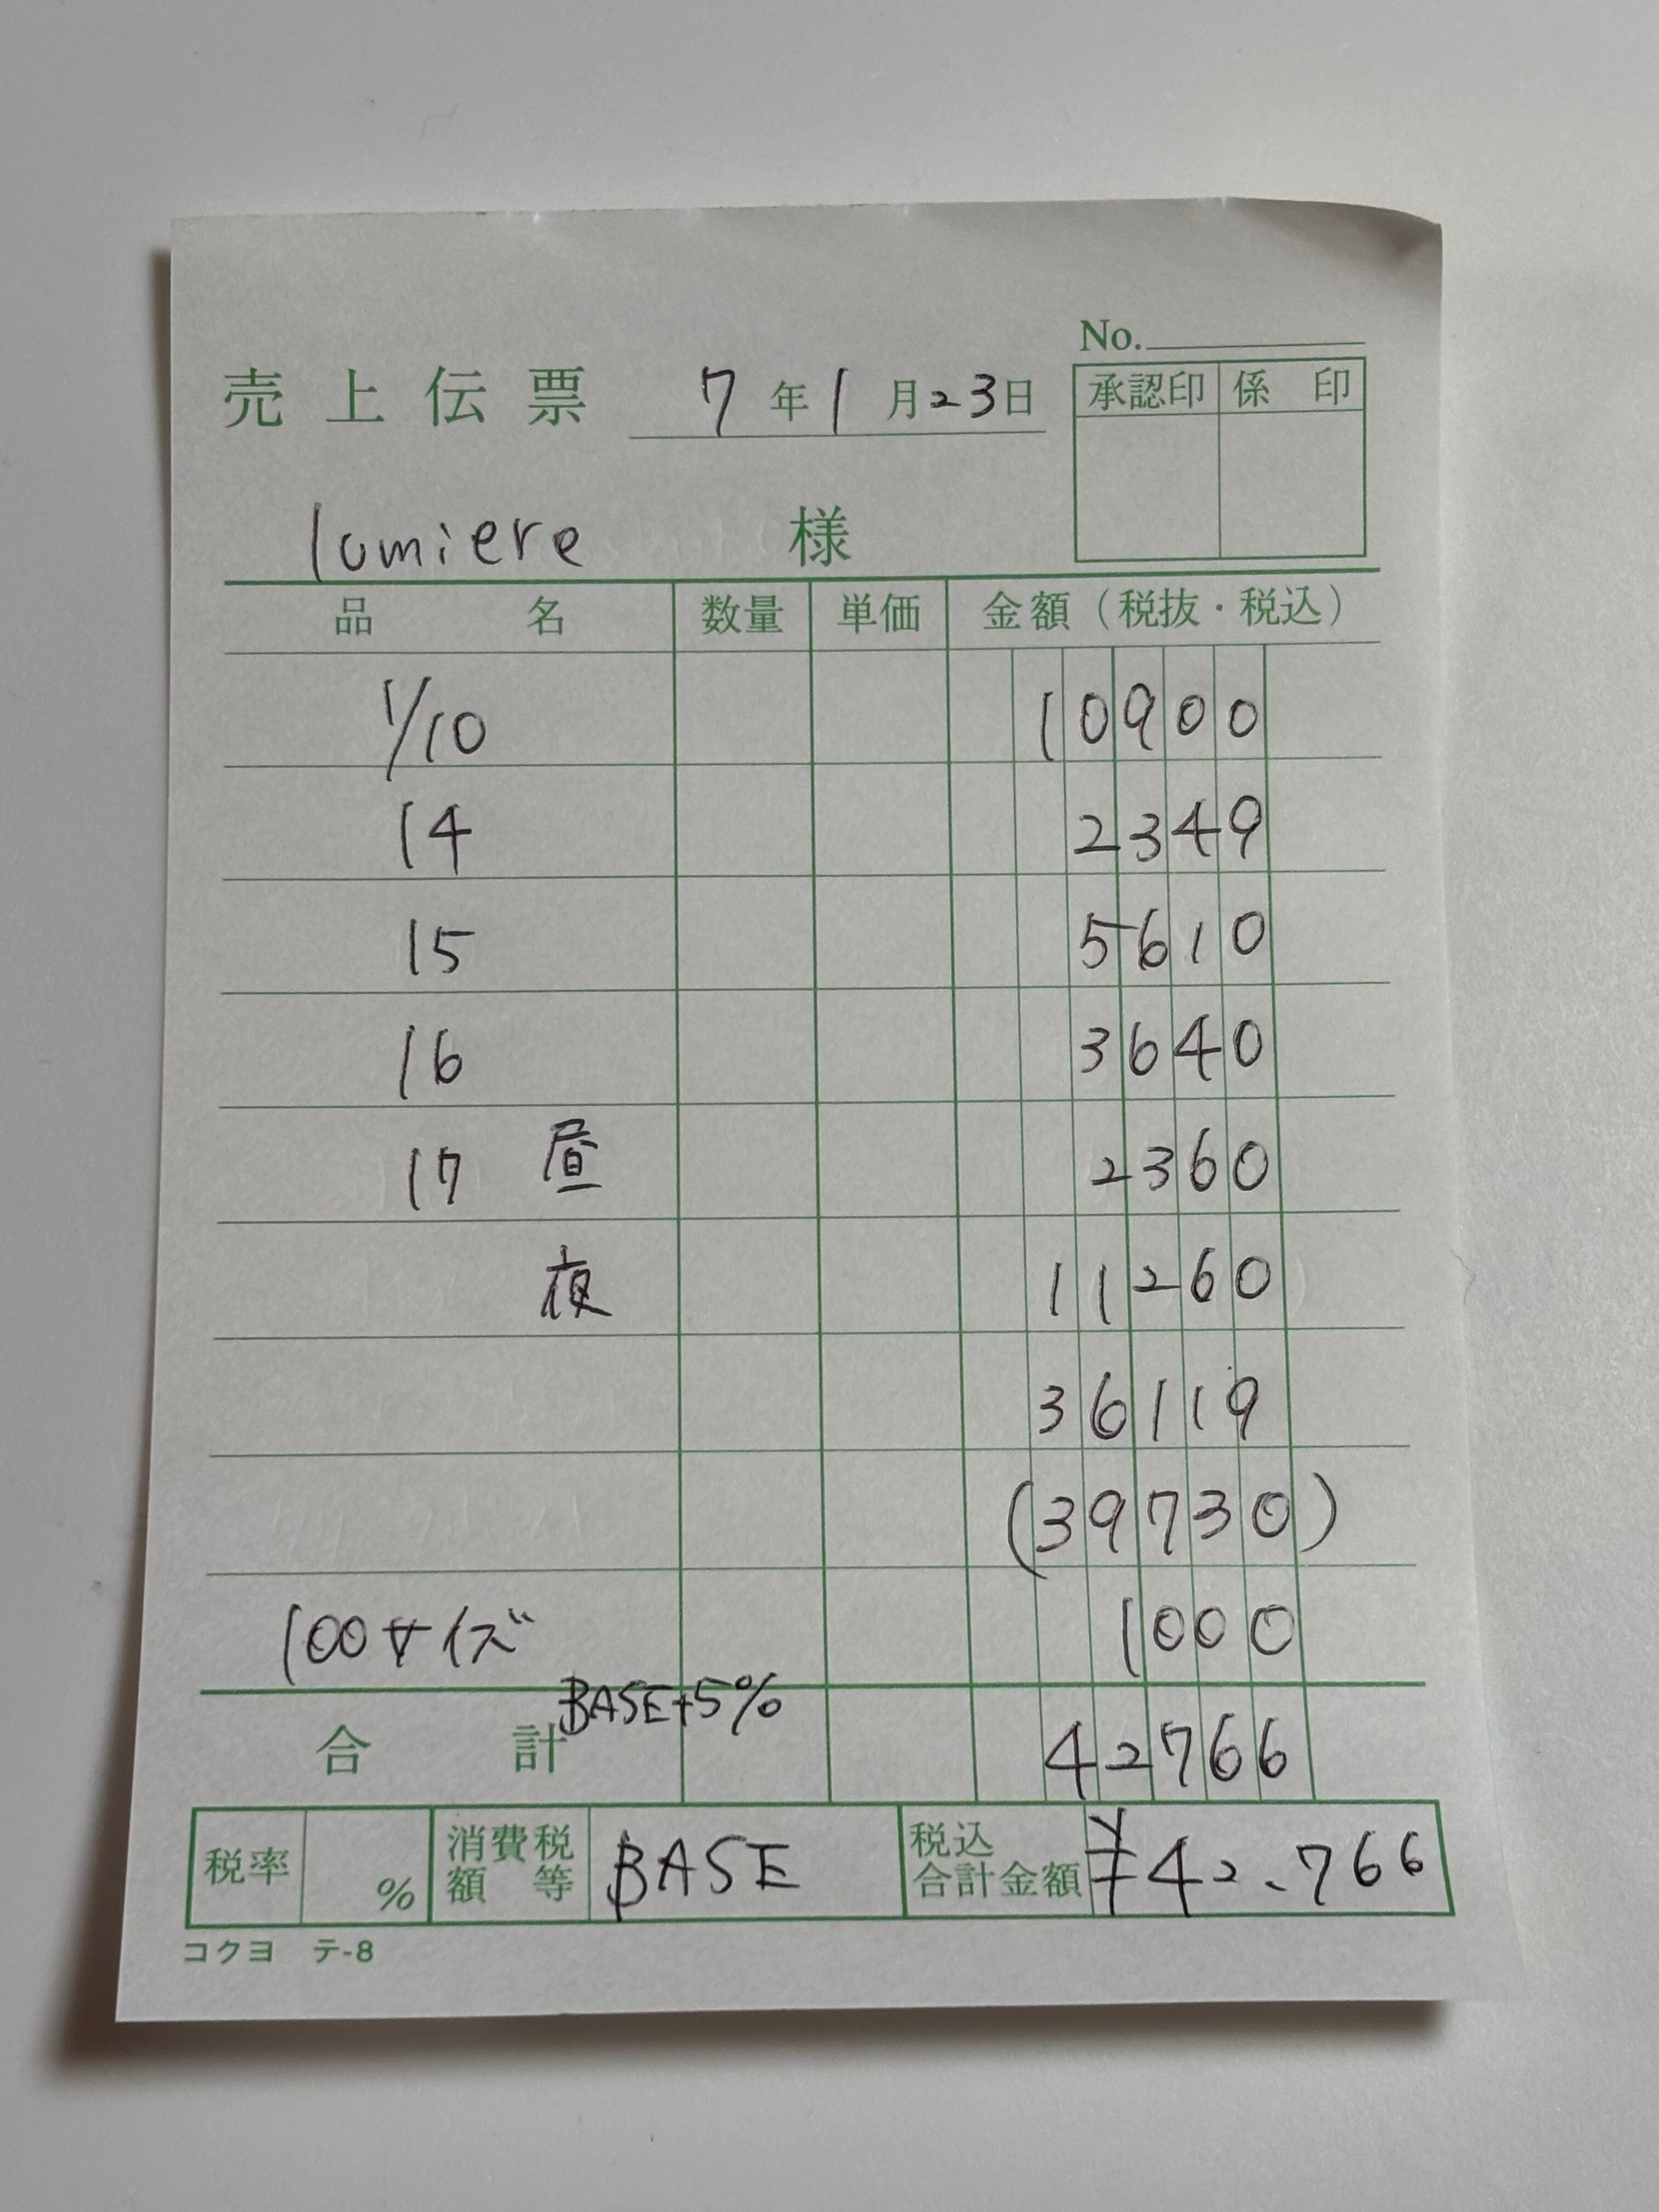 No.
売上伝票 7年1月23日
承認印 係印
lumiere 様
品名 数量 単価 金額（税抜・税込）
1/10 10900
14 2349
15 5610
16 3640
17 昼 2360
夜 11260
36119
(39730)
100サイズ 1000
合計 BASE+5% 42766
税率 % 消費税額等 BASE 税込合計金額 ¥42.766
コクヨ テ-8